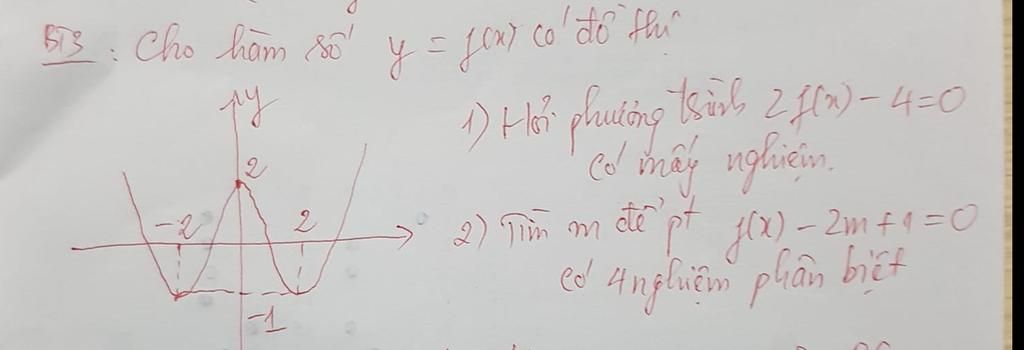 BT3: Cho hàm số y = f(x) có đồ thị
1) Hỏi phương trình 2f(x) - 4 = 0
có mấy nghiệm.
2) Tìm m để pt f(x) - 2m + 1 = 0
có 4 nghiệm phân biệt
y
2
-2
2
-1